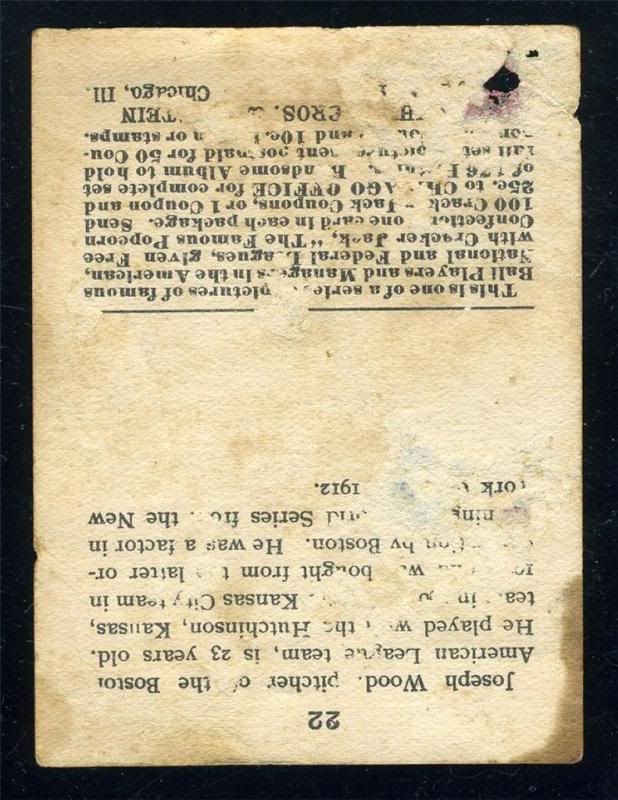 22
Joseph Wood, pitcher of the Boston
American League team, is 23 years old.
He played with the Hutchinson, Kansas,
team in Kansas City team in
bought from the latter or-
by Boston. He was a factor in
Series from the New
York 1912.
This is one of a series pictures of famous
Ball Players and Managers in the American,
National and Federal Leagues, given Free
with Cracker Jack, "The Famous Popcorn
Confection one card in each package. Send
100 Cracker Jack Coupons, or 1 Coupon and
25c. to CHICAGO OFFICE for complete set
of 176 Handsome Album to hold
full set pictures sent postpaid for 50 Cou-
and 10c. in or stamps.
BROS. &
Chicago, Ill.